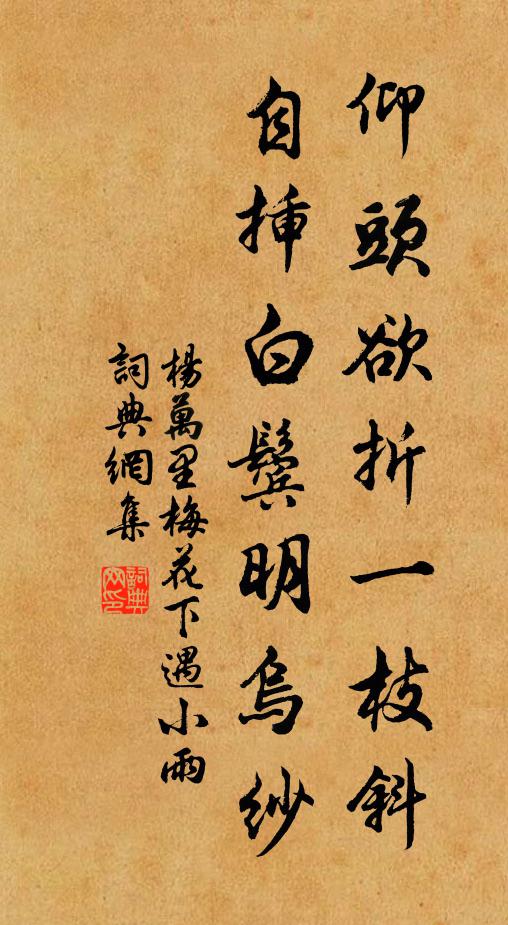 仰頭欲折一枝斜
自挿白鬢明烏紗
楊萬里梅花下遇小雨
詞典網集
詞典网印